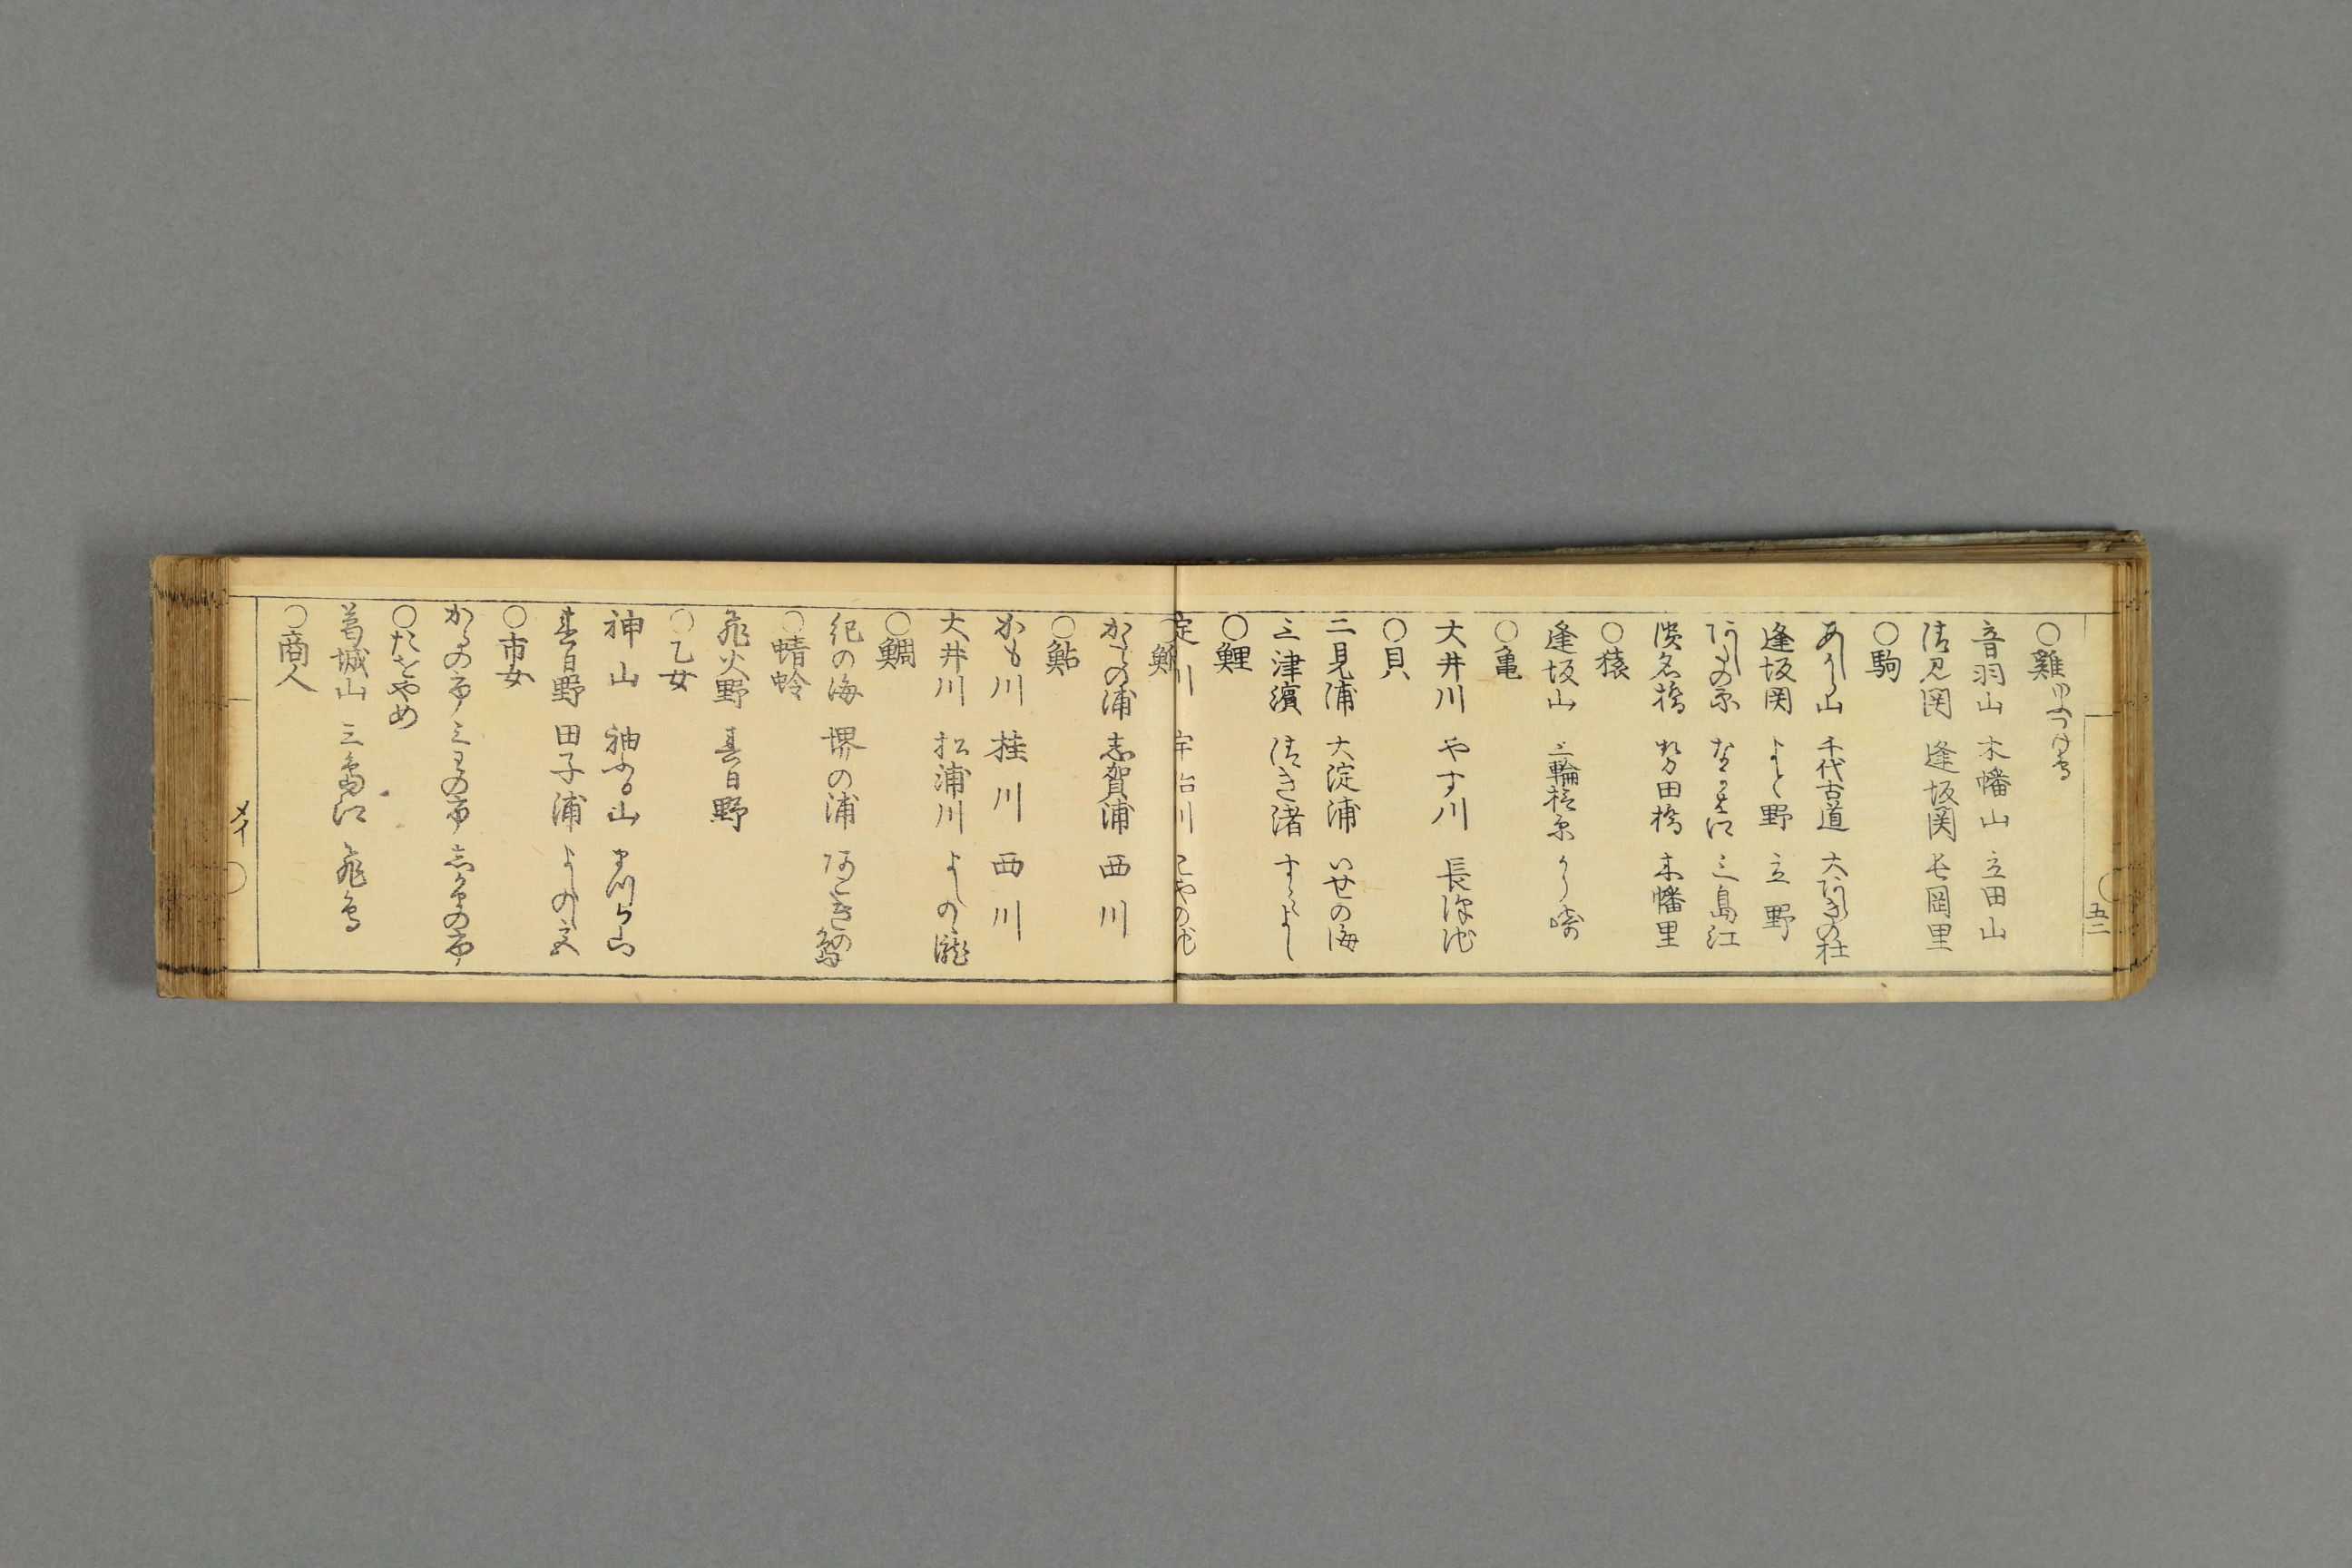 五二
○雞 ゆふつけ鳥
音羽山 木幡山 立田山
清見関 逢坂関 長岡里
○駒
あし山 千代古道 大あらきの杜
逢坂関 よと野 立野
みの原 三島江
濱名橋 勢田橋 木幡里
○猿
逢坂山 三輪檜原
○亀
大井川 やす川 長澤池
○貝
二見浦 大淀浦 いせの海
三津濱 清き渚 すみよし
○鯉
淀川 宇治川 こやの池
○鮒
からの浦 志賀浦 西川
○鮎
かも川 桂川 西川
大井川 松浦川 よしの瀧
○鯛
紀の海 堺の浦 あこきの島
○蜻蛉
飛火野 春日野
○乙女
神山 袖ふる山
春日野 田子浦 よしの宮
○市女
かるの市 三わの市 しかまの市
○たをやめ
葛城山 三島江 飛鳥
○商人
メイ